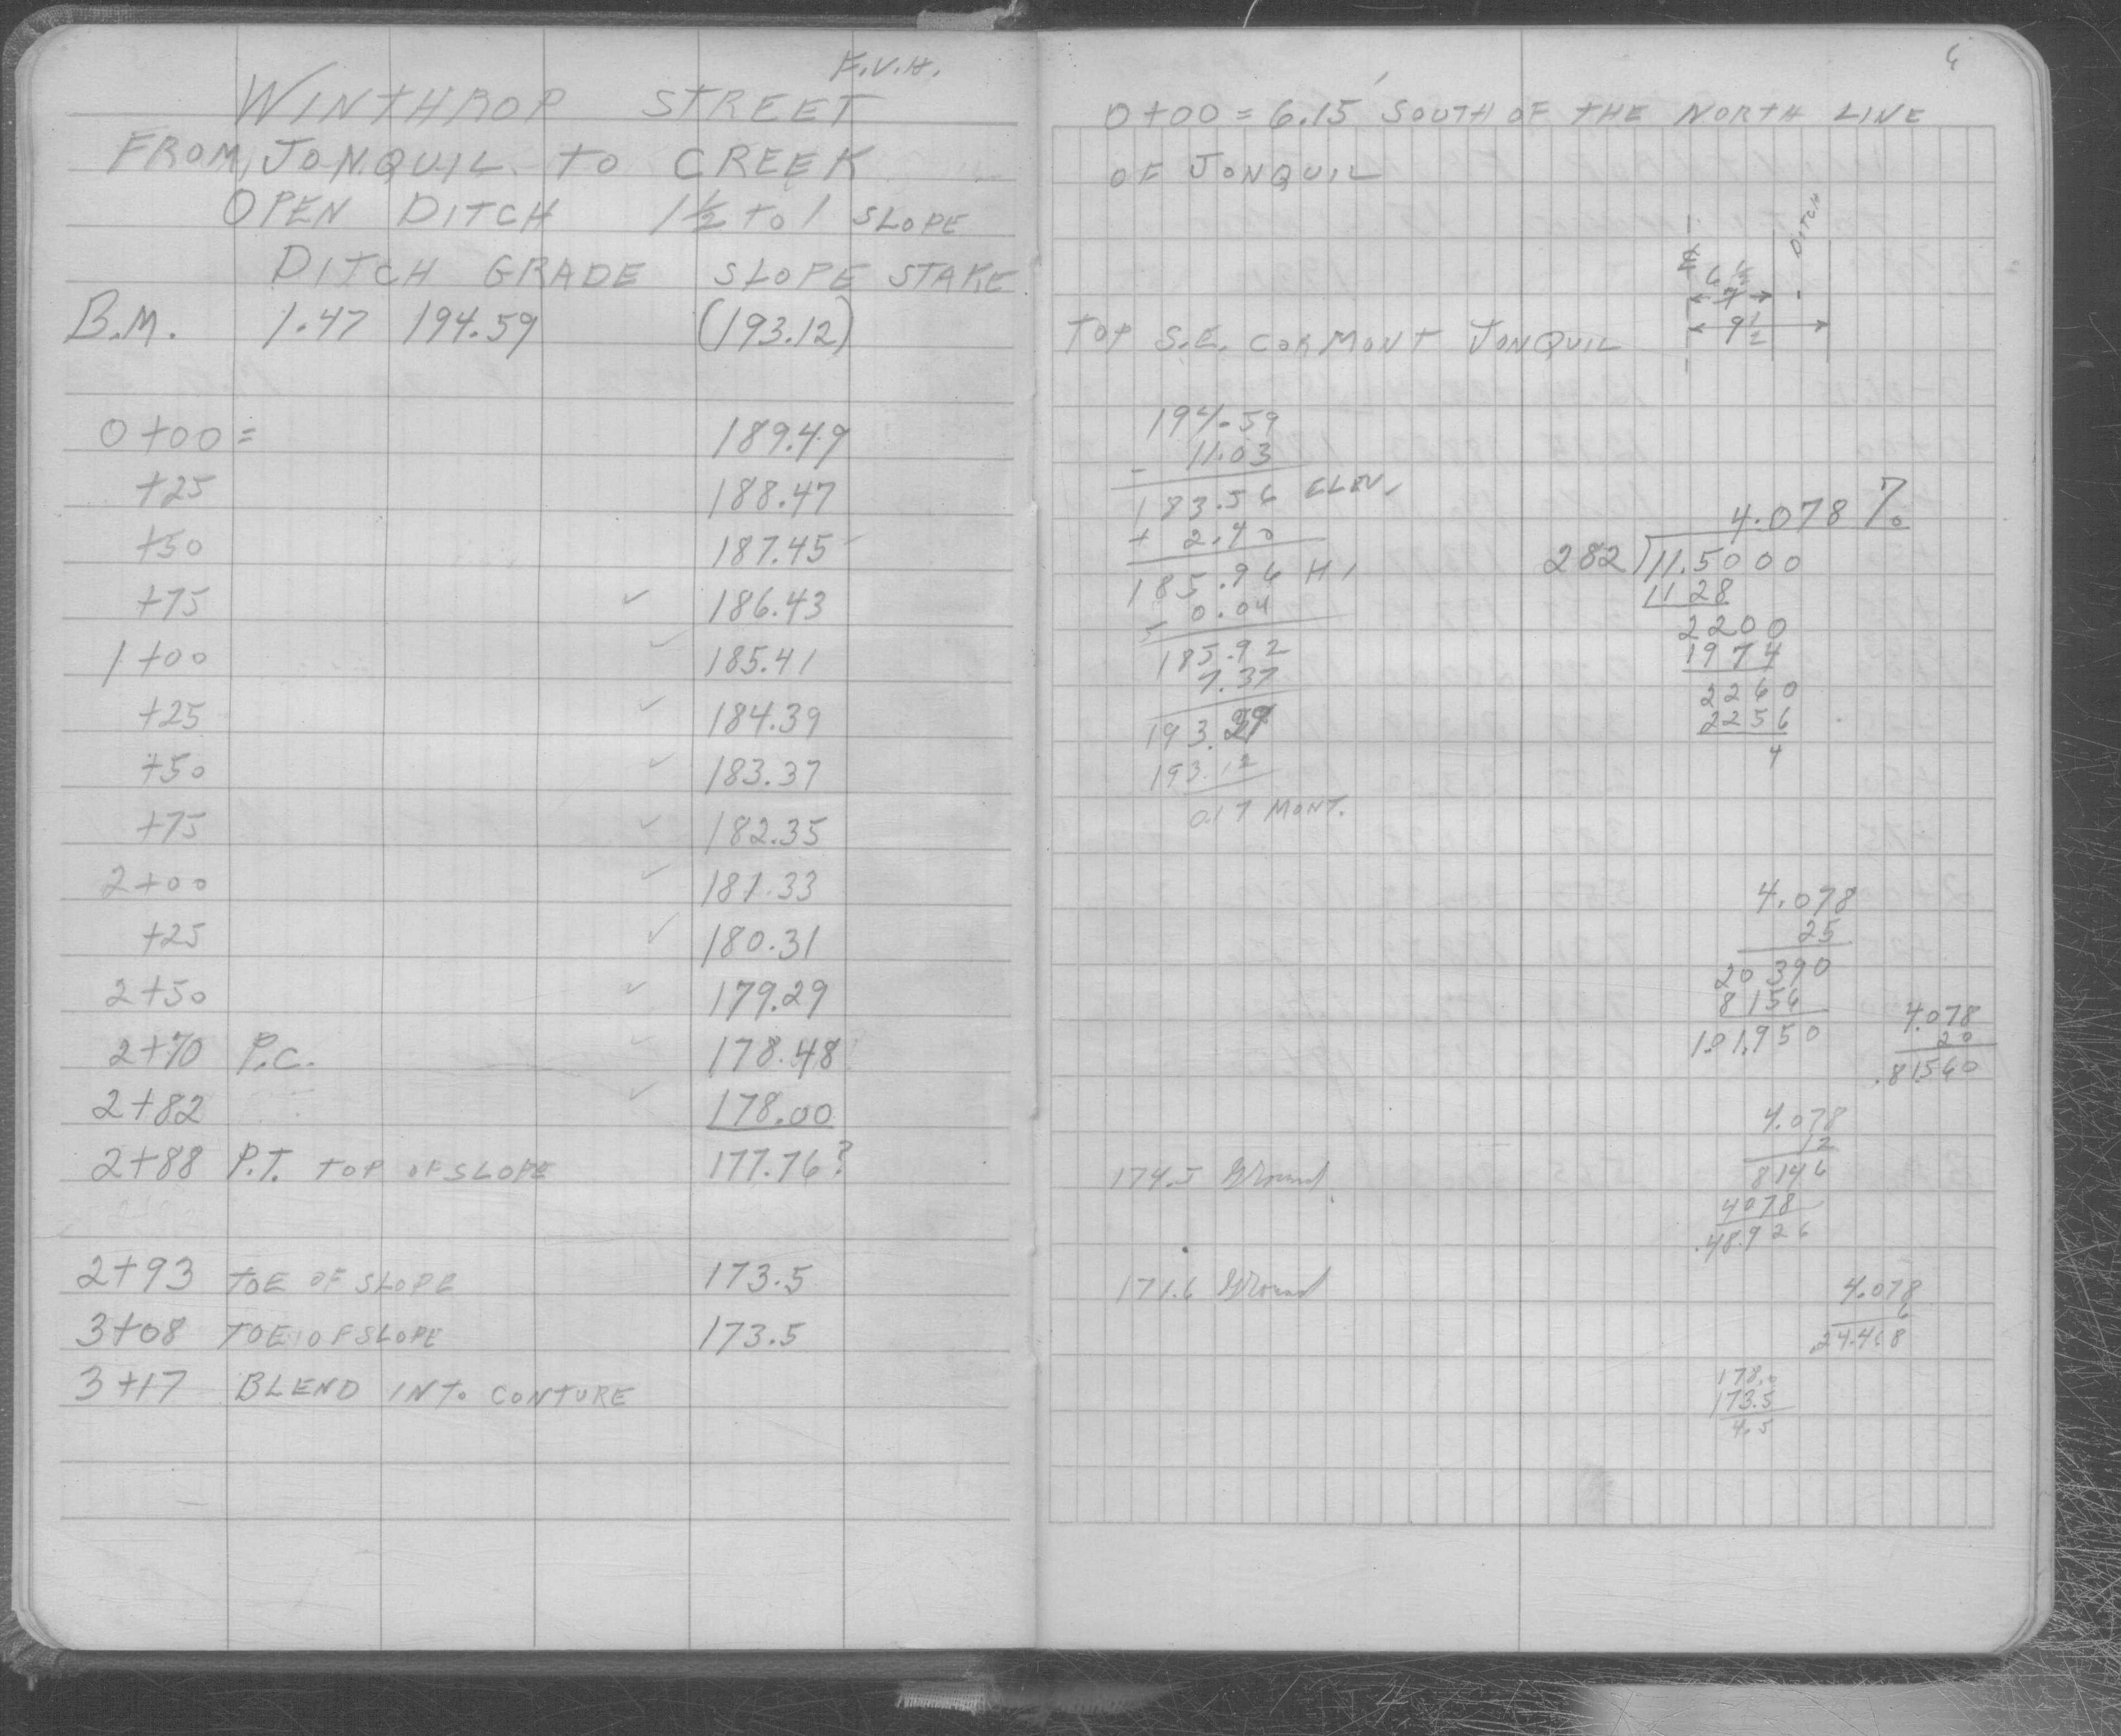 F.V.H.
WINTHROP STREET
FROM JONQUIL TO CREEK
OPEN DITCH 1½ TO 1 SLOPE
DITCH GRADE SLOPE STAKE
B.M. 1.47 194.59 (193.12)
0+00 = 189.49
+25 188.47
+50 187.45
+75 ✓ 186.43
1+00 ✓ 185.41
+25 ✓ 184.39
+50 ✓ 183.37
+75 ✓ 182.35
2+00 ✓ 181.33
+25 ✓ 180.31
2+50 ✓ 179.29
2+70 P.C. ✓ 178.48
2+82 ✓ 178.00
2+88 P.T. TOP OF SLOPE 177.76?
2+93 TOE OF SLOPE 173.5
3+08 TOE OF SLOPE 173.5
3+17 BLEND INTO CONTURE
6
0+00 = 6.15' SOUTH OF THE NORTH LINE
OF JONQUIL
DITCH
6½
7
9½
TOP S.E. COR MONT JONQUIL
194.59
- 11.03
183.56 ELEV.
+ 2.40
185.96 H.
- 0.04
185.92
7.37
193.29
193.12
0.17 MONT.
4.078 %
282 ) 11.5000
1128
2200
1974
2260
2256
4
4.078
25
20390
8156
1.01.950
4.078
20
.81560
4.078
12
8146
4078
.48.926
174.5 Ground
171.6 Ground
4.078
6
.24.468
178.0
173.5
4.5